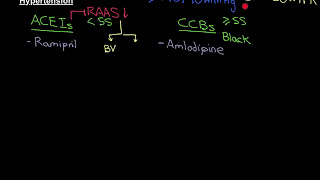 Hypertension
RAAS↓
ACEIs < 55
CCBs ≥ 55
BV
Block
- Ramipril
- Amlodipine